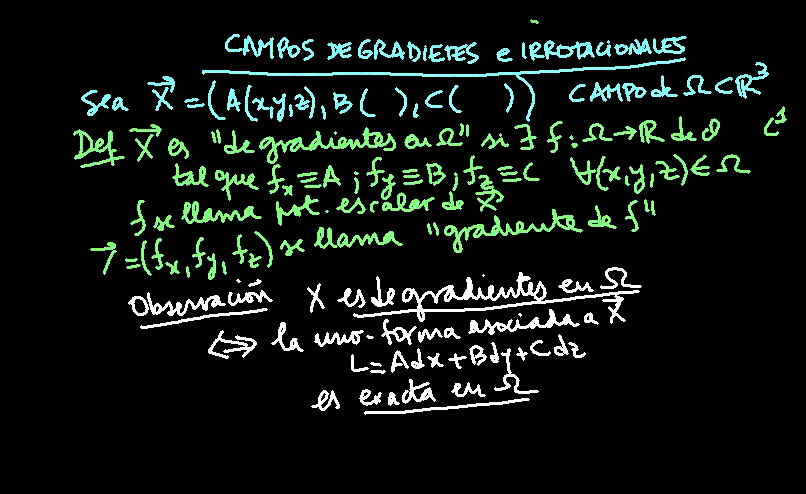 CAMPOS DE GRADIETES e IRROTACIONALES
Sea X⃗ = (A(x,y,z), B( ), C( )) CAMPO de Ω⊂ℝ³
Def X⃗ es "de gradientes en Ω" si ∃ f: Ω→ℝ de C¹
tal que f_x ≡ A ; f_y ≡ B ; f_z ≡ C ∀(x,y,z) ∈ Ω
f se llama pot. escalar de X⃗
= (f_x, f_y, f_z) se llama "gradiente de f"
Observación X es de gradientes en Ω
⟺ la uno-forma asociada a X⃗
L = Adx + Bdy + Cdz
es exacta en Ω